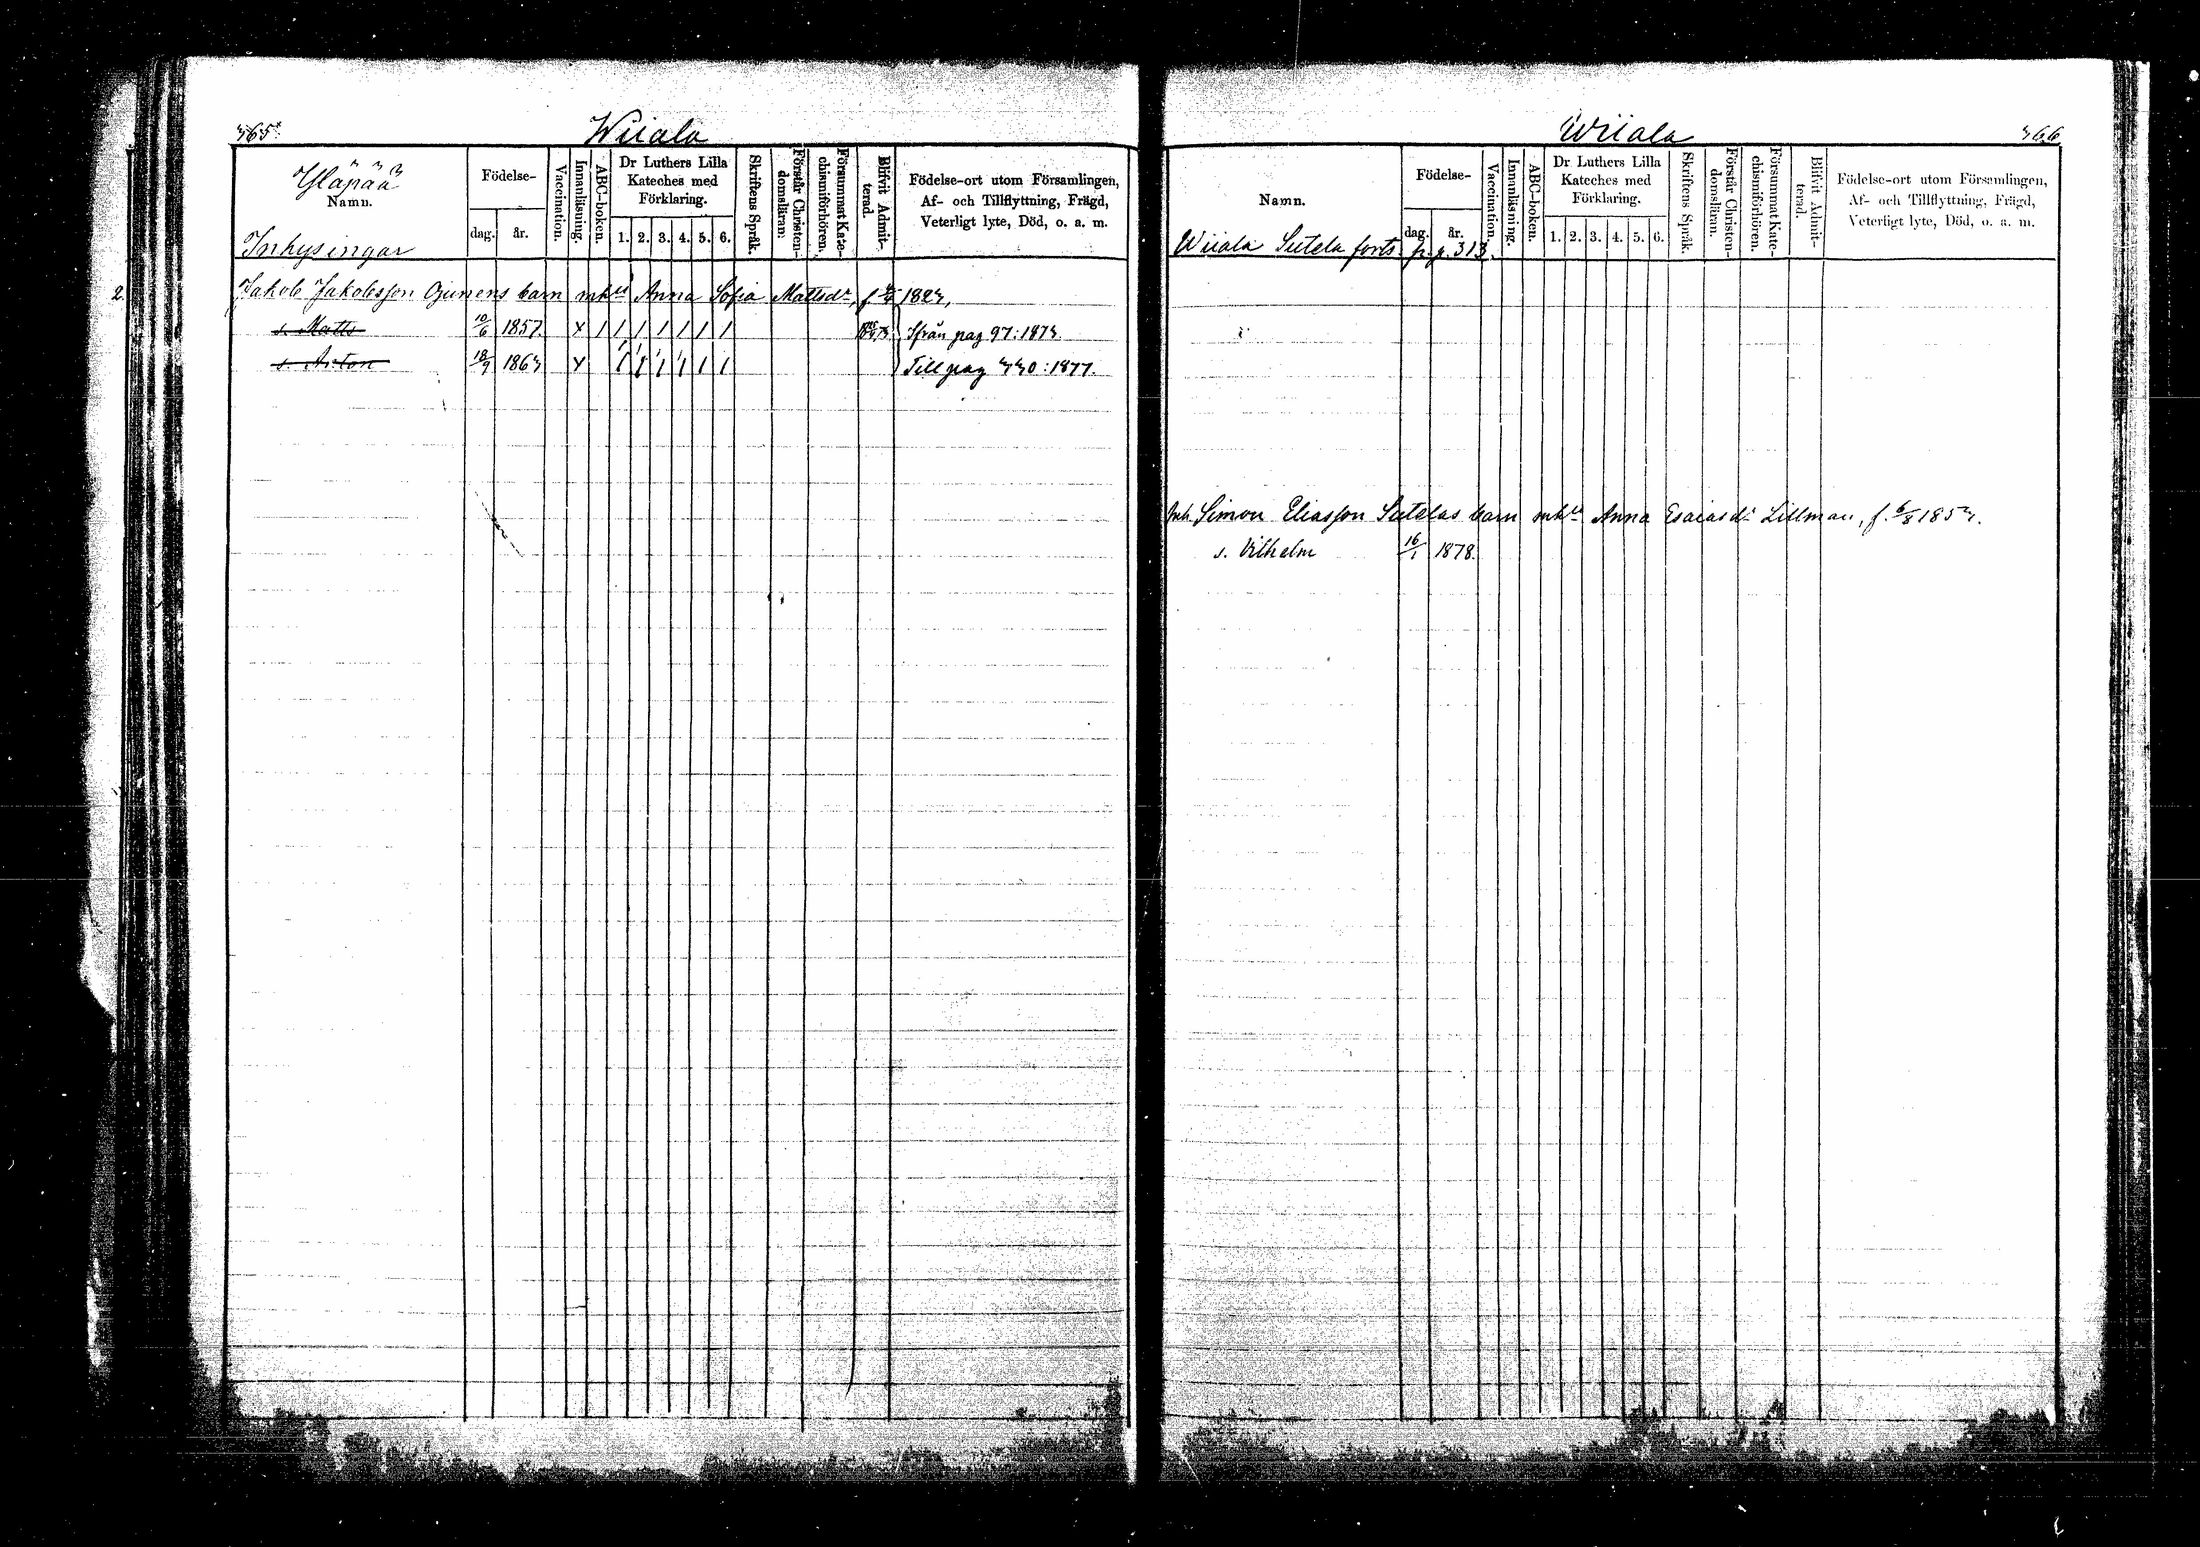 365.
Wiiala
Yläpää
Namn.
Inhysingar
Födelse-
dag.
år.
Vaccination.
Innanläsning.
ABC-boken.
Dr Luthers Lilla
Kateches med
Förklaring.
1. 2. 3. 4. 5. 6.
Skriftens Språk.
Förstår Christen-
domsläran:
Försummat Kate-
chismiförhören.
Blifvit Admit-
terad.
Födelse-ort utom Församlingen,
Af- och Tillflyttning, Frägd,
Veterligt lyte, Död, o. a. m.
2. Jakob Jakobsson Ojunens barn mhu Anna Sofia Mattsdr, f. 1823,
s. Matts 10/6 1857. x / / / / / / / Ifrån pag 97: 1873
s. Anton 18/9 1863 x / / / / / / Till pag 330: 1877.
Wiiala
366
Namn.
Wiiala Sutela forts. fr. p. 313.
Födelse-
dag.
år.
Vaccination.
Innanläsning.
ABC-boken.
Dr Luthers Lilla
Kateches med
Förklaring.
1. 2. 3. 4. 5. 6.
Skriftens Språk.
Förstår Christen-
domsläran.
Försummat Kate-
chismiförhören.
Blifvit Admit-
terad.
Födelse-ort utom Församlingen,
Af- och Tillflyttning, Frägd,
Veterligt lyte, Död, o. a. m.
Inh. Simon Eliasson Sutelas barn mhu Anna Esaiasdr Lillman, f. 6/8 1853.
s. Vilhelm 16/1 1878.